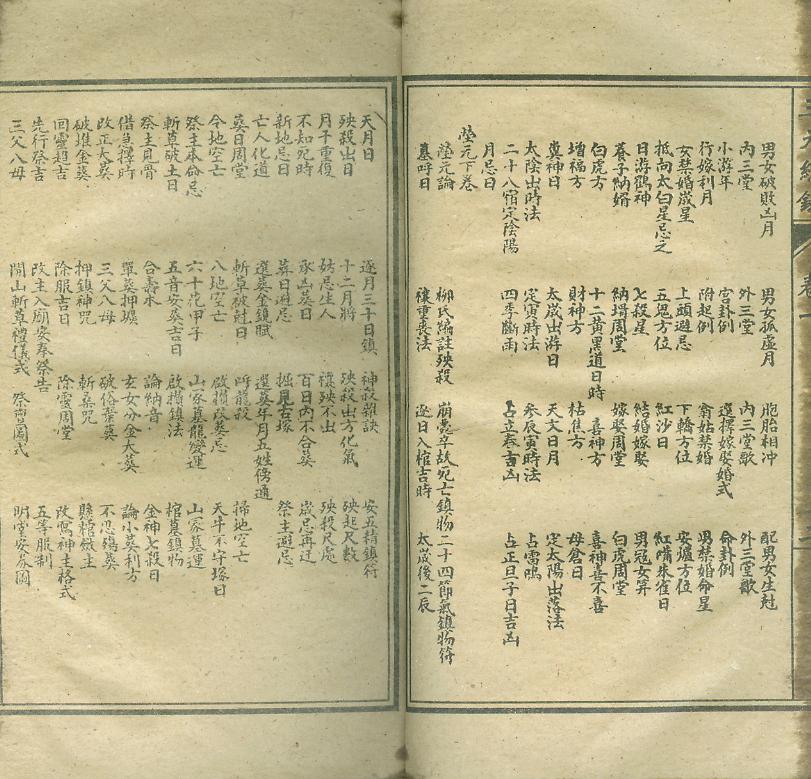 男女破敗凶月 男女孤虛月 胞胎相冲 配男女生尅
內三堂 外三堂 內三堂歌 外三堂歌
小游年 宫卦例 選擇嫁娶婚式 命卦例
行嫁利月 附起例 翁姑禁婚 男禁婚命星
女禁婚歲星 上頭避忌 下轎方位 安爐方位
抵向太白星忌之 五鬼方位 紅沙日 紅嘴朱雀日
日游鶴神 七殺星 結婚嫁娶 男冠女笄
養子納婿 納壻周堂 嫁娶周堂 白虎周堂
白虎方 十二黃黑道日時 喜神方 喜神喜不喜
增福方 財神方 枯焦方 母倉日
奠神日 太歲出游日 天文日月 定太陽出落法
太陰出時法 定寅時法 參辰寅時法 占雷鳴
二十八宿定陰陽 四季斷雨 占立春吉凶 占正旦子日吉凶
月忌日
塋元下卷
塋元論 柳氏編註殃殺 崩薨卒故死亡鎮物 二十四節氣鎮物符
墓呼日 禳重喪法 逐日入棺吉時 太歲後二辰
天月日 逐月三十日鎮 神殺雜訣 安五精鎮符
殃殺出日 十二月將 殃殺出方化氣 殃起尺數
月干重復 妨忌生人 禳殃不出 殃殺尺處
不知死時 承凶葬日 百日內不合葬 歲忌再迁
新地忌日 葬日避忌 掘見古塚 祭主避忌
亡人化道 選葬金鏡賦 選葬年月五姓傍通
葬日周堂 斬草破尅日 呼龍殺 掃地空亡
今地空亡 八地空亡 啟攢改葬忌 天牛不守塚日
祭主本命忌 六十花甲子 山家墓龍變運 山家墓運
斬草破土日 五音安葬吉日 啟攢鎮法 棺墓鎮物
祭主見骨 合壽木 論納音 金神七殺日
借急擇時 單葬押壙 玄女分金大葬 論小葬利方
改正大葬 三父八母 破俗棄葬 不忍殤葬
破堆金葬 押鎮神咒 斬桑咒 懸棺
回靈超吉 除服吉日 除靈周堂 改寫神主格式
先行祭吉 改主入廟安奉祭告 五等服制
三父八母 開山斬草禮儀式 祭官圖式 明堂安券圖